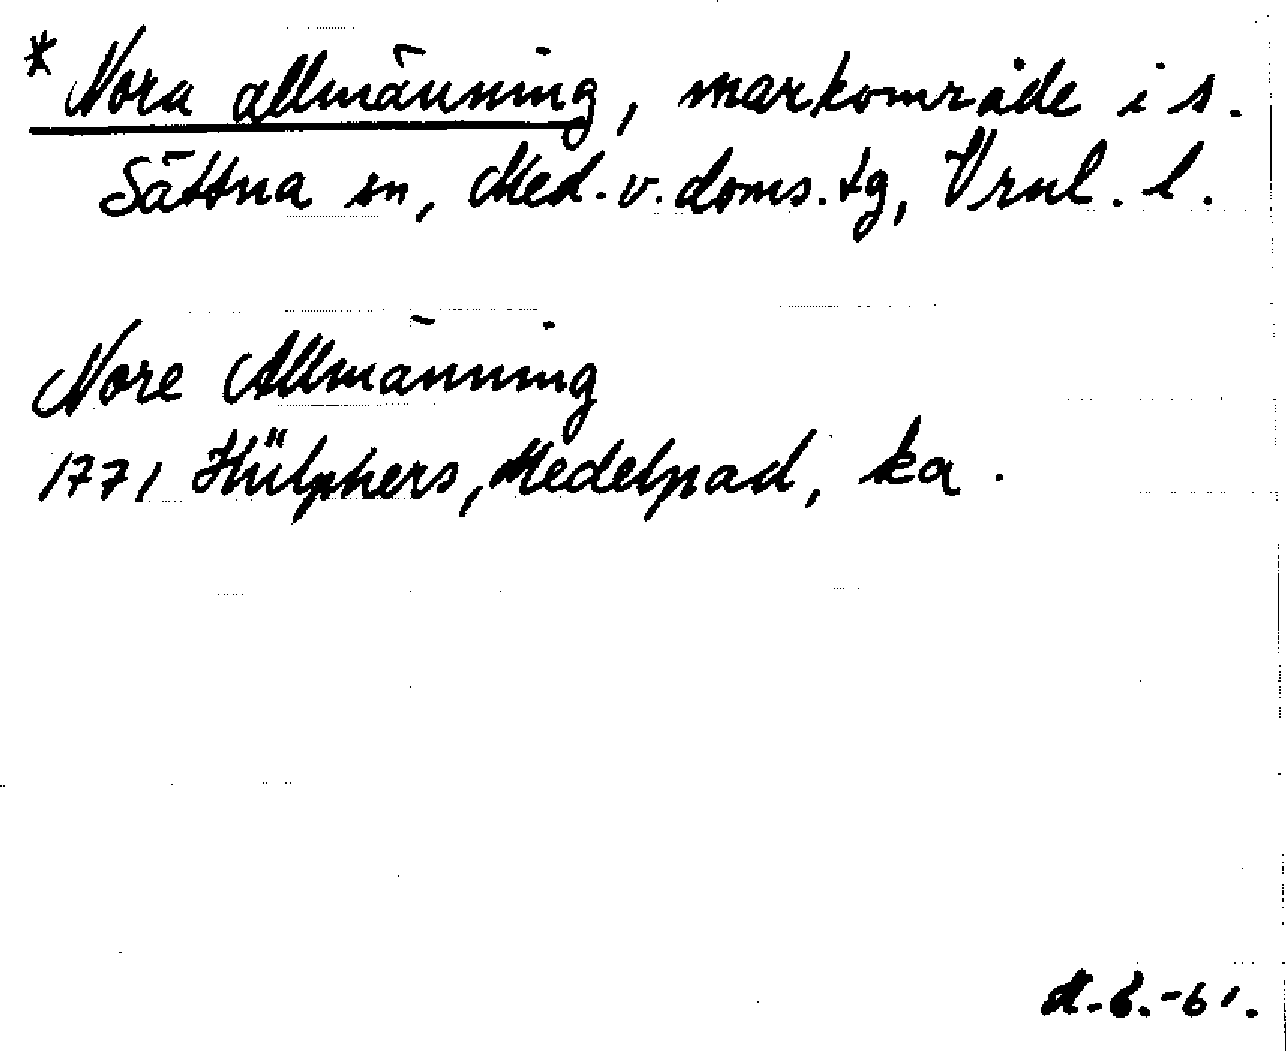 * Nora allmänning, markområde i s.
Sättna sn, Med. v. doms. tg, Vrnl. l.
Nore Allmänning
1771 Hülphers, Medelpad, ka.
-61.